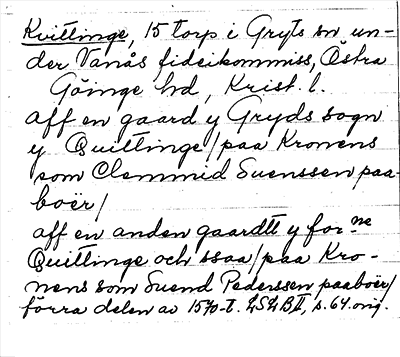 Kvittinge, 15 torp i Gryts sn un-
der Vanås fideikommiss, Östra
Göinge hd, Krist. l.
aff en gaard y Gryds sogn
y Quittinge/paa Kronens
som Clemmid Suenssen paa-
boër/
aff en anden gaardtt y forne
Quittinge och ssaa/paa Kro-
nens som Suend Pederssen paaboër/
förra delen av 1570-t. LSLB II, s. 64. orig.